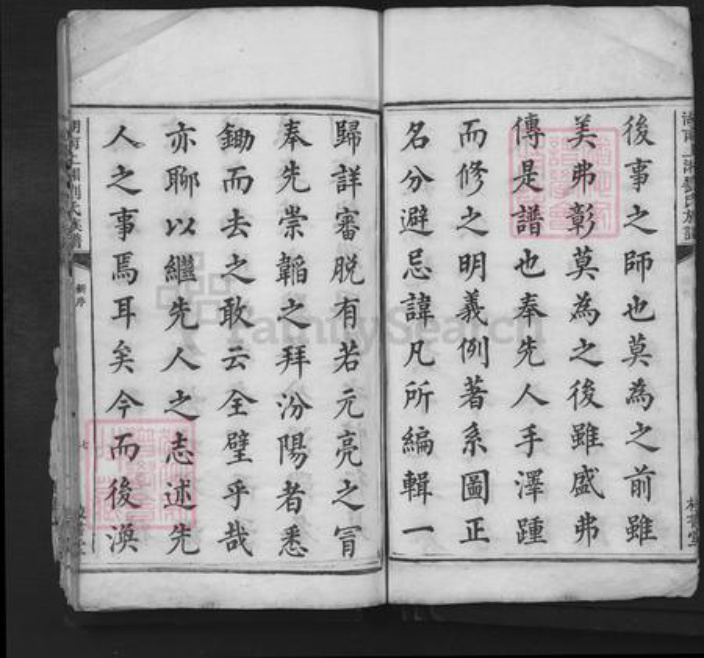 後事之師也莫為之前雖
美弗彰莫為之後雖盛弗
傳是譜也奉先人手澤踵
而修之明義例著系圖正
名分避忌諱凡所編輯一
歸詳審脫有若元亮之冒
奉先崇韜之拜汾陽者悉
鋤而去之敢云全璧乎哉
亦聊以繼先人之志述先
人之事焉耳矣今而後渙
湖南上湘劉氏族譜
七
FamilySearch